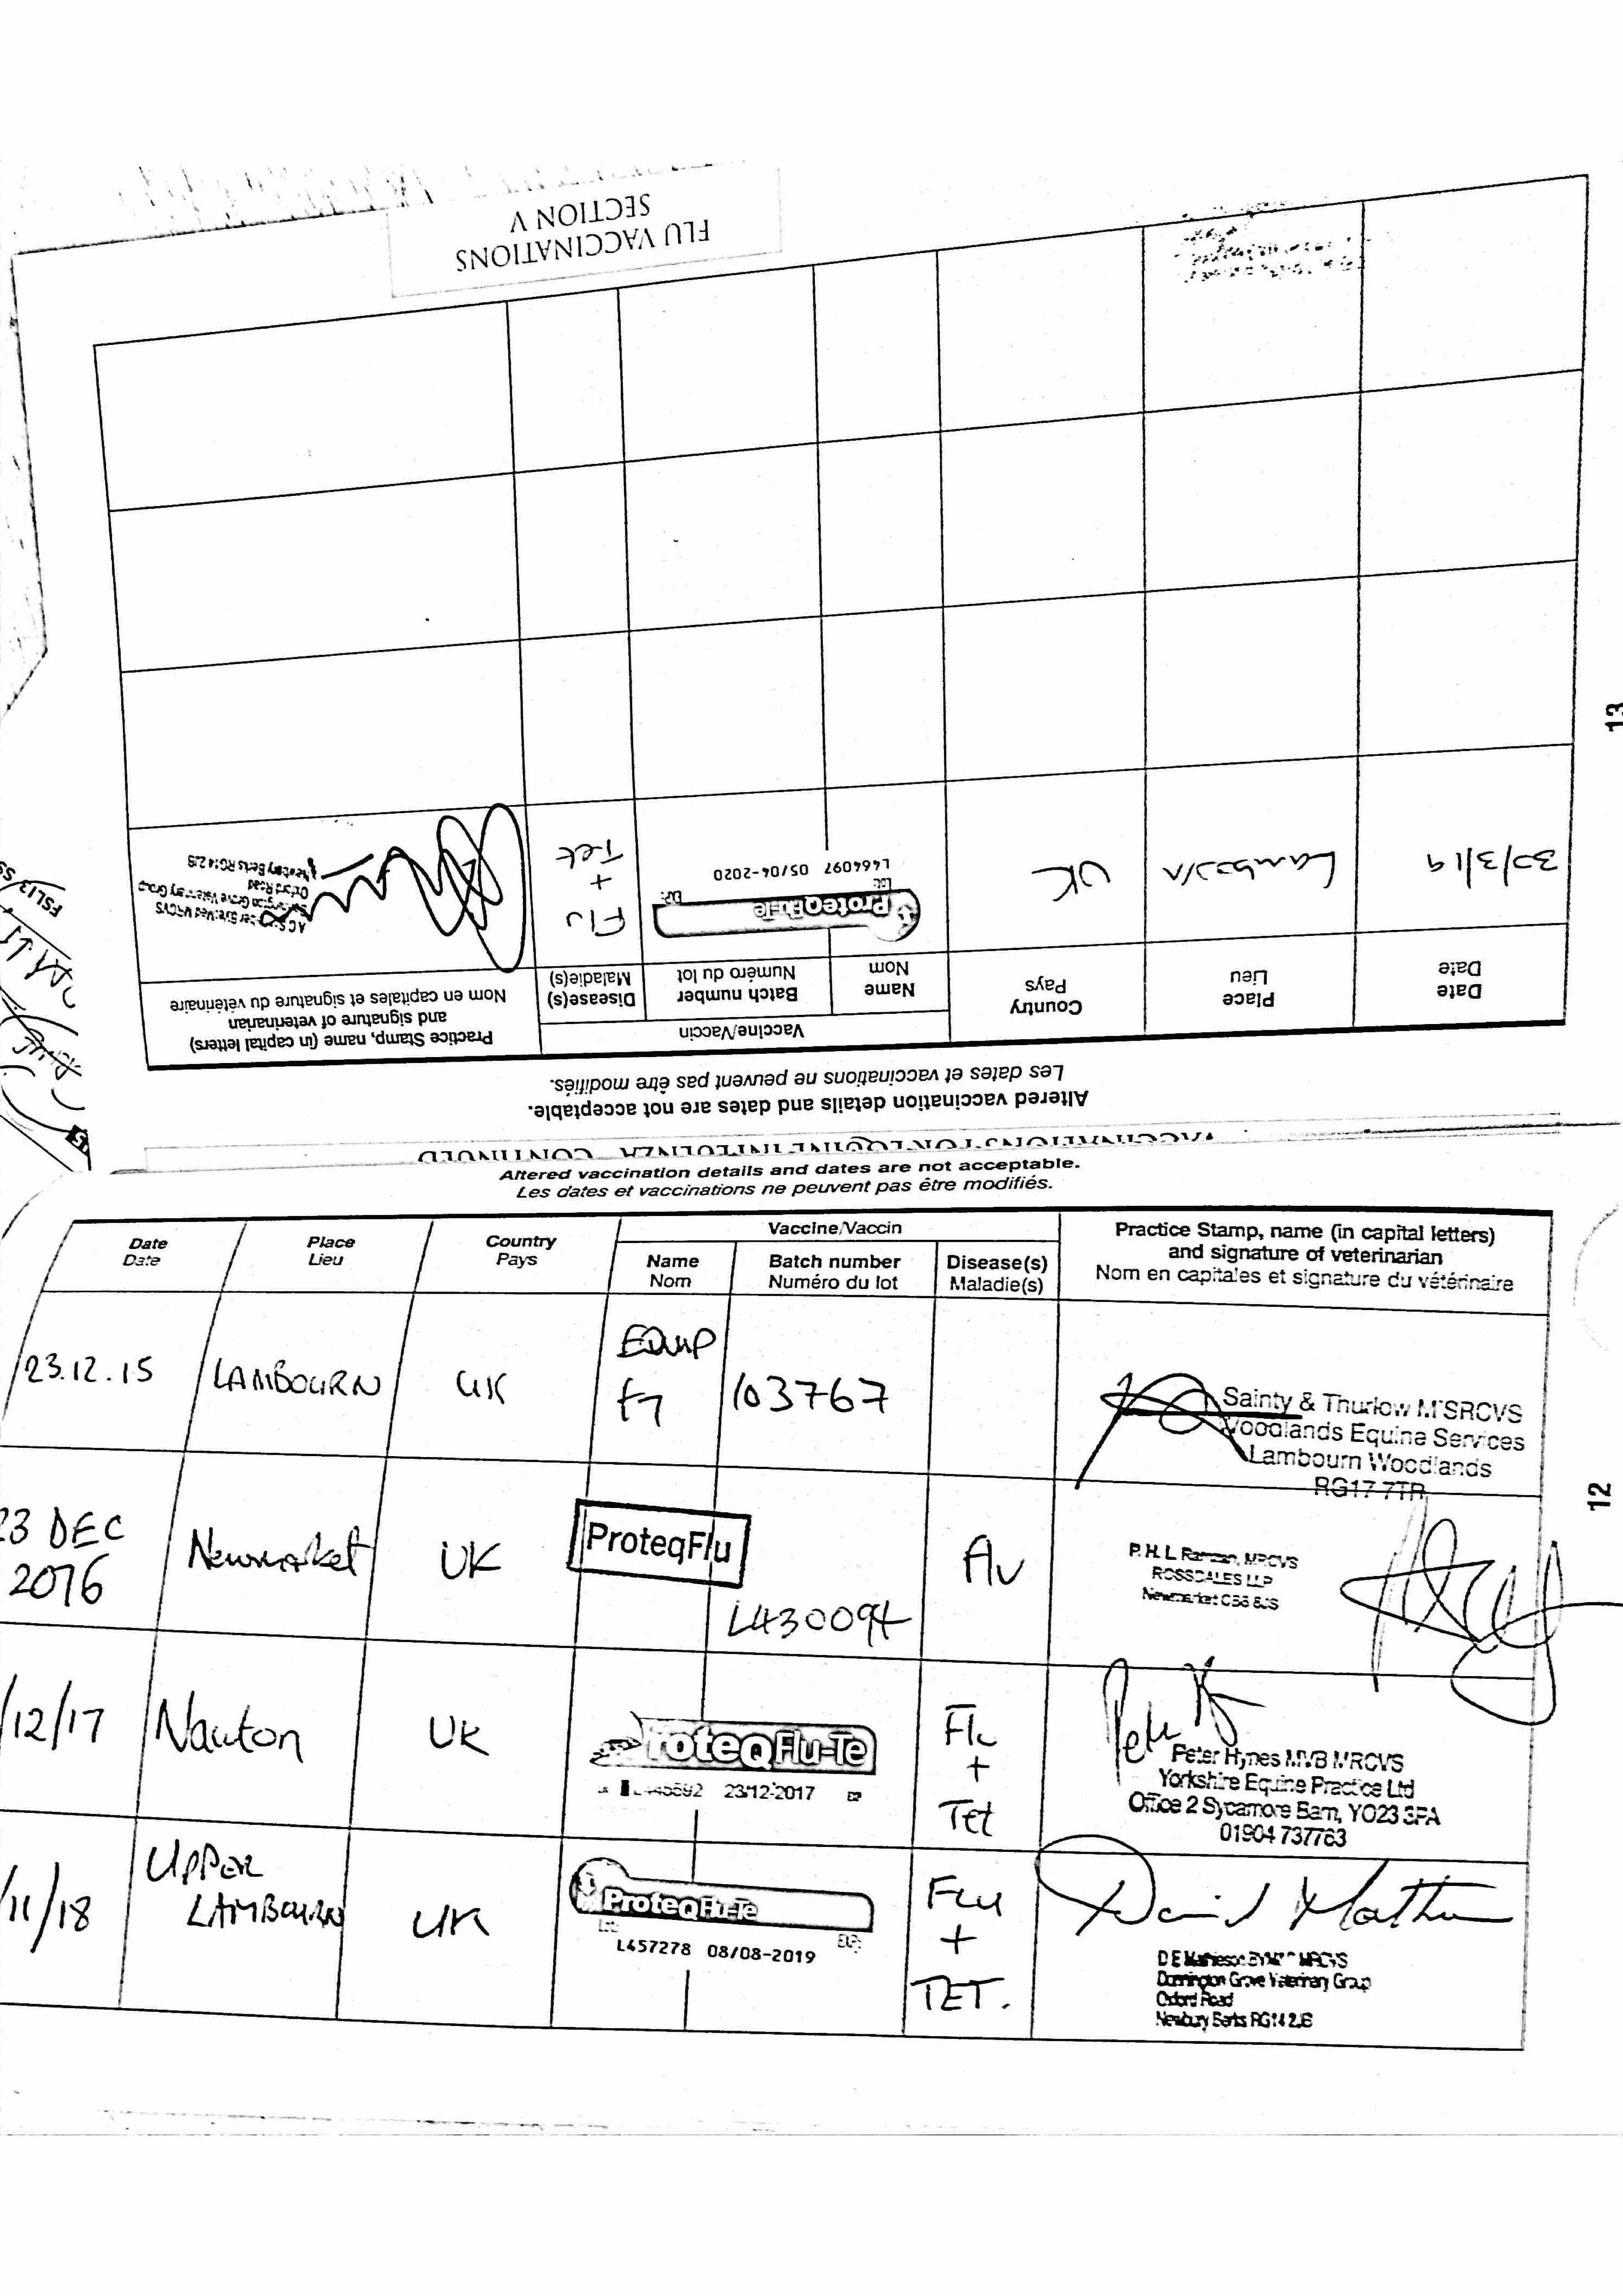 FLU VACCINATIONS
SECTION V
13
Altered vaccination details and dates are not acceptable.
Les dates et vaccinations ne peuvent pas être modifiés.
Date
Date
Place
Lieu
Country
Pays
Vaccine/Vaccin
Name
Nom
Batch number
Numéro du lot
Disease(s)
Maladie(s)
Practice Stamp, name (in capital letters)
and signature of veterinarian
Nom en capitales et signature du vétérinaire
30/3/19
UK
ProteqFlu-Te
Lot:
EXP:
L464097 05/04-2020
Flu
+
Tet
MRCVS
Grove Veterinary Group
Oxford Road
Newbury Berks RG14 2JB
FSL13
VACCINATIONS FOR EQUINE INFLUENZA CONTINUED
Altered vaccination details and dates are not acceptable.
Les dates et vaccinations ne peuvent pas être modifiés.
Date
Date
Place
Lieu
Country
Pays
Vaccine/Vaccin
Name
Nom
Batch number
Numéro du lot
Disease(s)
Maladie(s)
Practice Stamp, name (in capital letters)
and signature of veterinarian
Nom en capitales et signature du vétérinaire
23.12.15
LAMBOURN
UK
EQUIP
103767
Sainty & Thurlow M'SRCVS
Woodlands Equine Services
Lambourn Woodlands
RG17 7TR
12
23 DEC
2016
Newmarket
UK
ProteqFlu
L430094
Flu
P. H. L. MRCVS
ROSSDALES LLP
Newmarket CB8 8JS
/12/17
Nawton
UK
ProteqFlu-Te
23/12-2017
Flu
+
Tet
Peter Hynes MVB MRCVS
Yorkshire Equine Practice Ltd
Office 2 Sycamore Barn, YO23 3PA
01904 737763
/11/18
UPPER
LAMBOURN
UK
ProteqFlu-Te
Lot:
EXP:
L457278 08/08-2019
FLU
+
TET.
D E Matheson MRCVS
Donnington Grove Veterinary Group
Oxford Road
Newbury Berks RG14 2JB